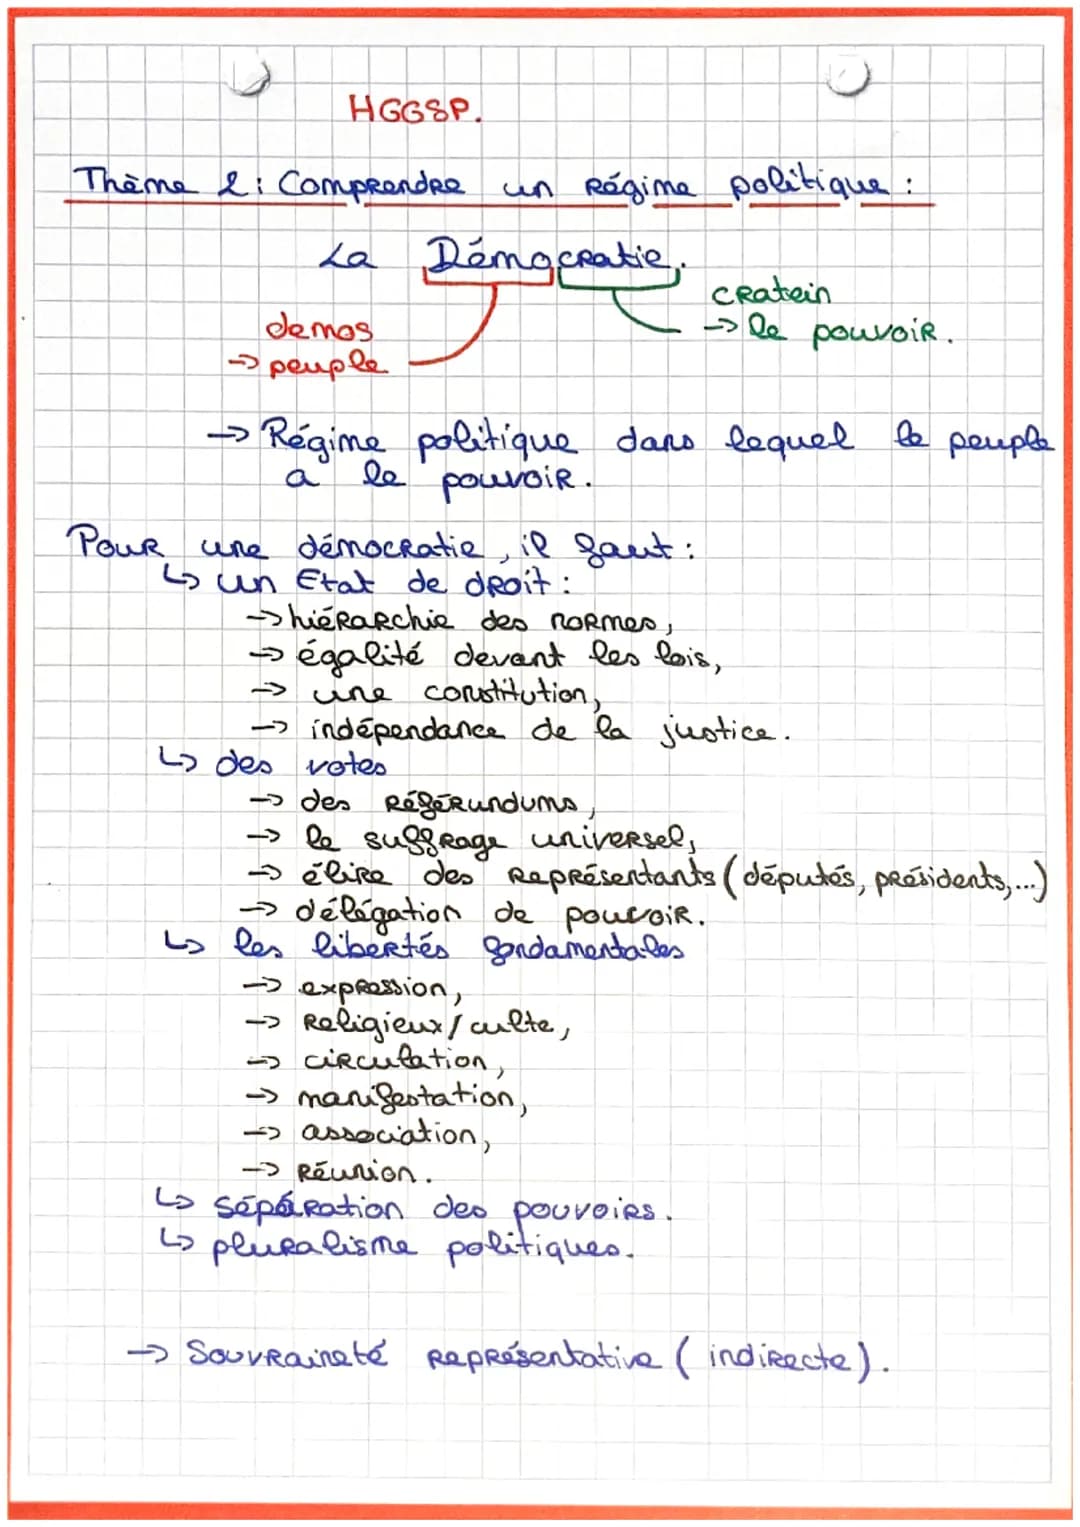 HGGSP.
Thème 2 : Comprendre un régime politique :
La Démocratie.
cratein
demos
→ le pouvoir.
→ peuple
→ Régime politique dans lequel le peuple
a le pouvoir.
Pour une démocratie, il faut :
↳ un Etat de droit :
→ hiérarchie des normes,
→ égalité devant les lois,
→ une constitution,
→ indépendance de la justice.
↳ des votes
→ des référundums,
→ le suffrage universel,
→ élire des représentants (députés, présidents,...)
→ délégation de pouvoir.
↳ les libertés fondamentales
→ expression,
→ religieux / culte,
→ circulation,
→ manifestation,
→ association,
→ réunion.
↳ séparation des pouvoirs.
↳ pluralisme politiques.
→ Souvraineté représentative (indirecte).